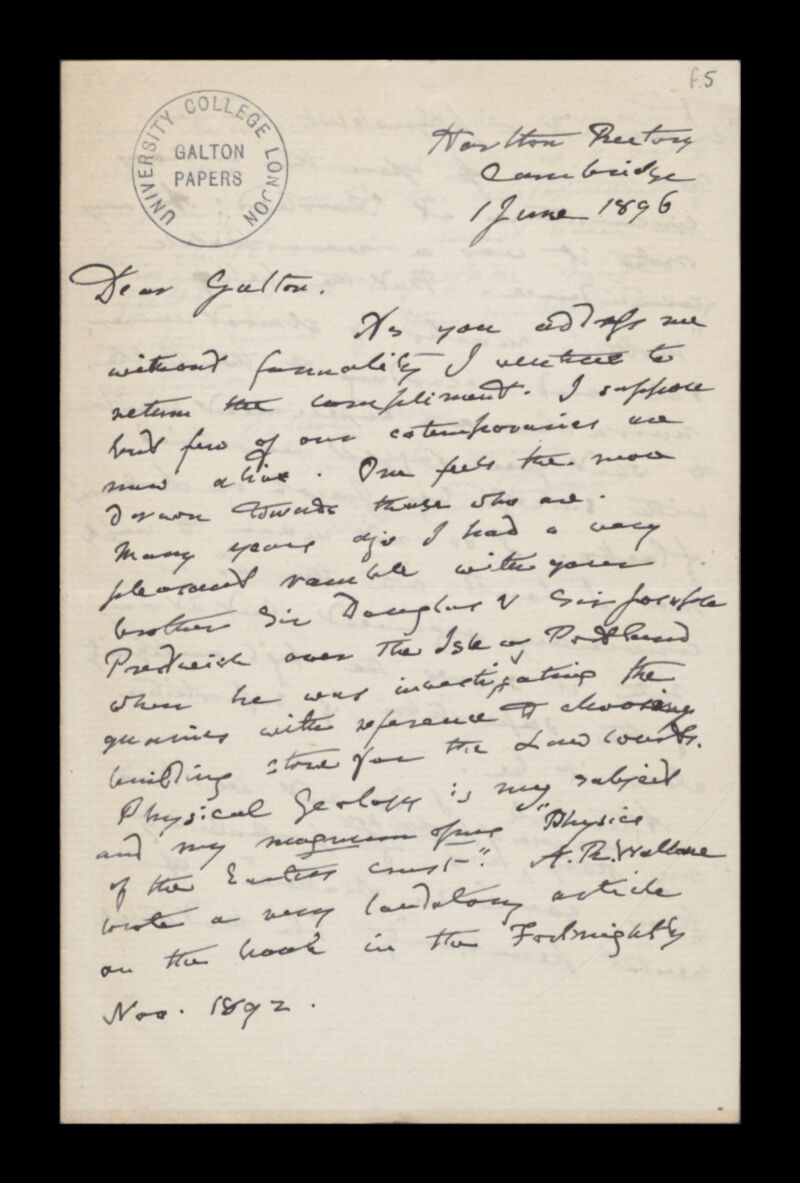 f.5
UNIVERSITY COLLEGE LONDON
GALTON
PAPERS
Harlton Rectory
Cambridge
1 June 1896
Dear Galton.
As you address me
without formality I venture to
return the compliment. I suppose
but few of our cotemporaries are
now alive. One feels the more
drawn towards those who are.
Many years ago I had a very
pleasant ramble with your
brother Sir Douglas & Sir Joseph
Prestwich over the Isle of Portland
when he was investigating the
quarries with reference to choosing
building stone for the Law Courts.
Physical Geology is my subject
and my magnum opus "Physics
of the Earths crust". A. R. Wallace
wrote a very laudatory article
on the book in the Fortnightly
Nov. 1892.